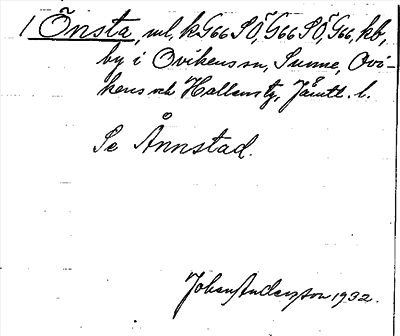 1 Önsta, ml, kG66 SÖ, G66 SÖ, G66, kb,
by i Ovikens sn, Sunne, Ovi-
kens och Hallens tg, Jämtl. l.
Se Ånnstad.
Johan Anderzson 1932.